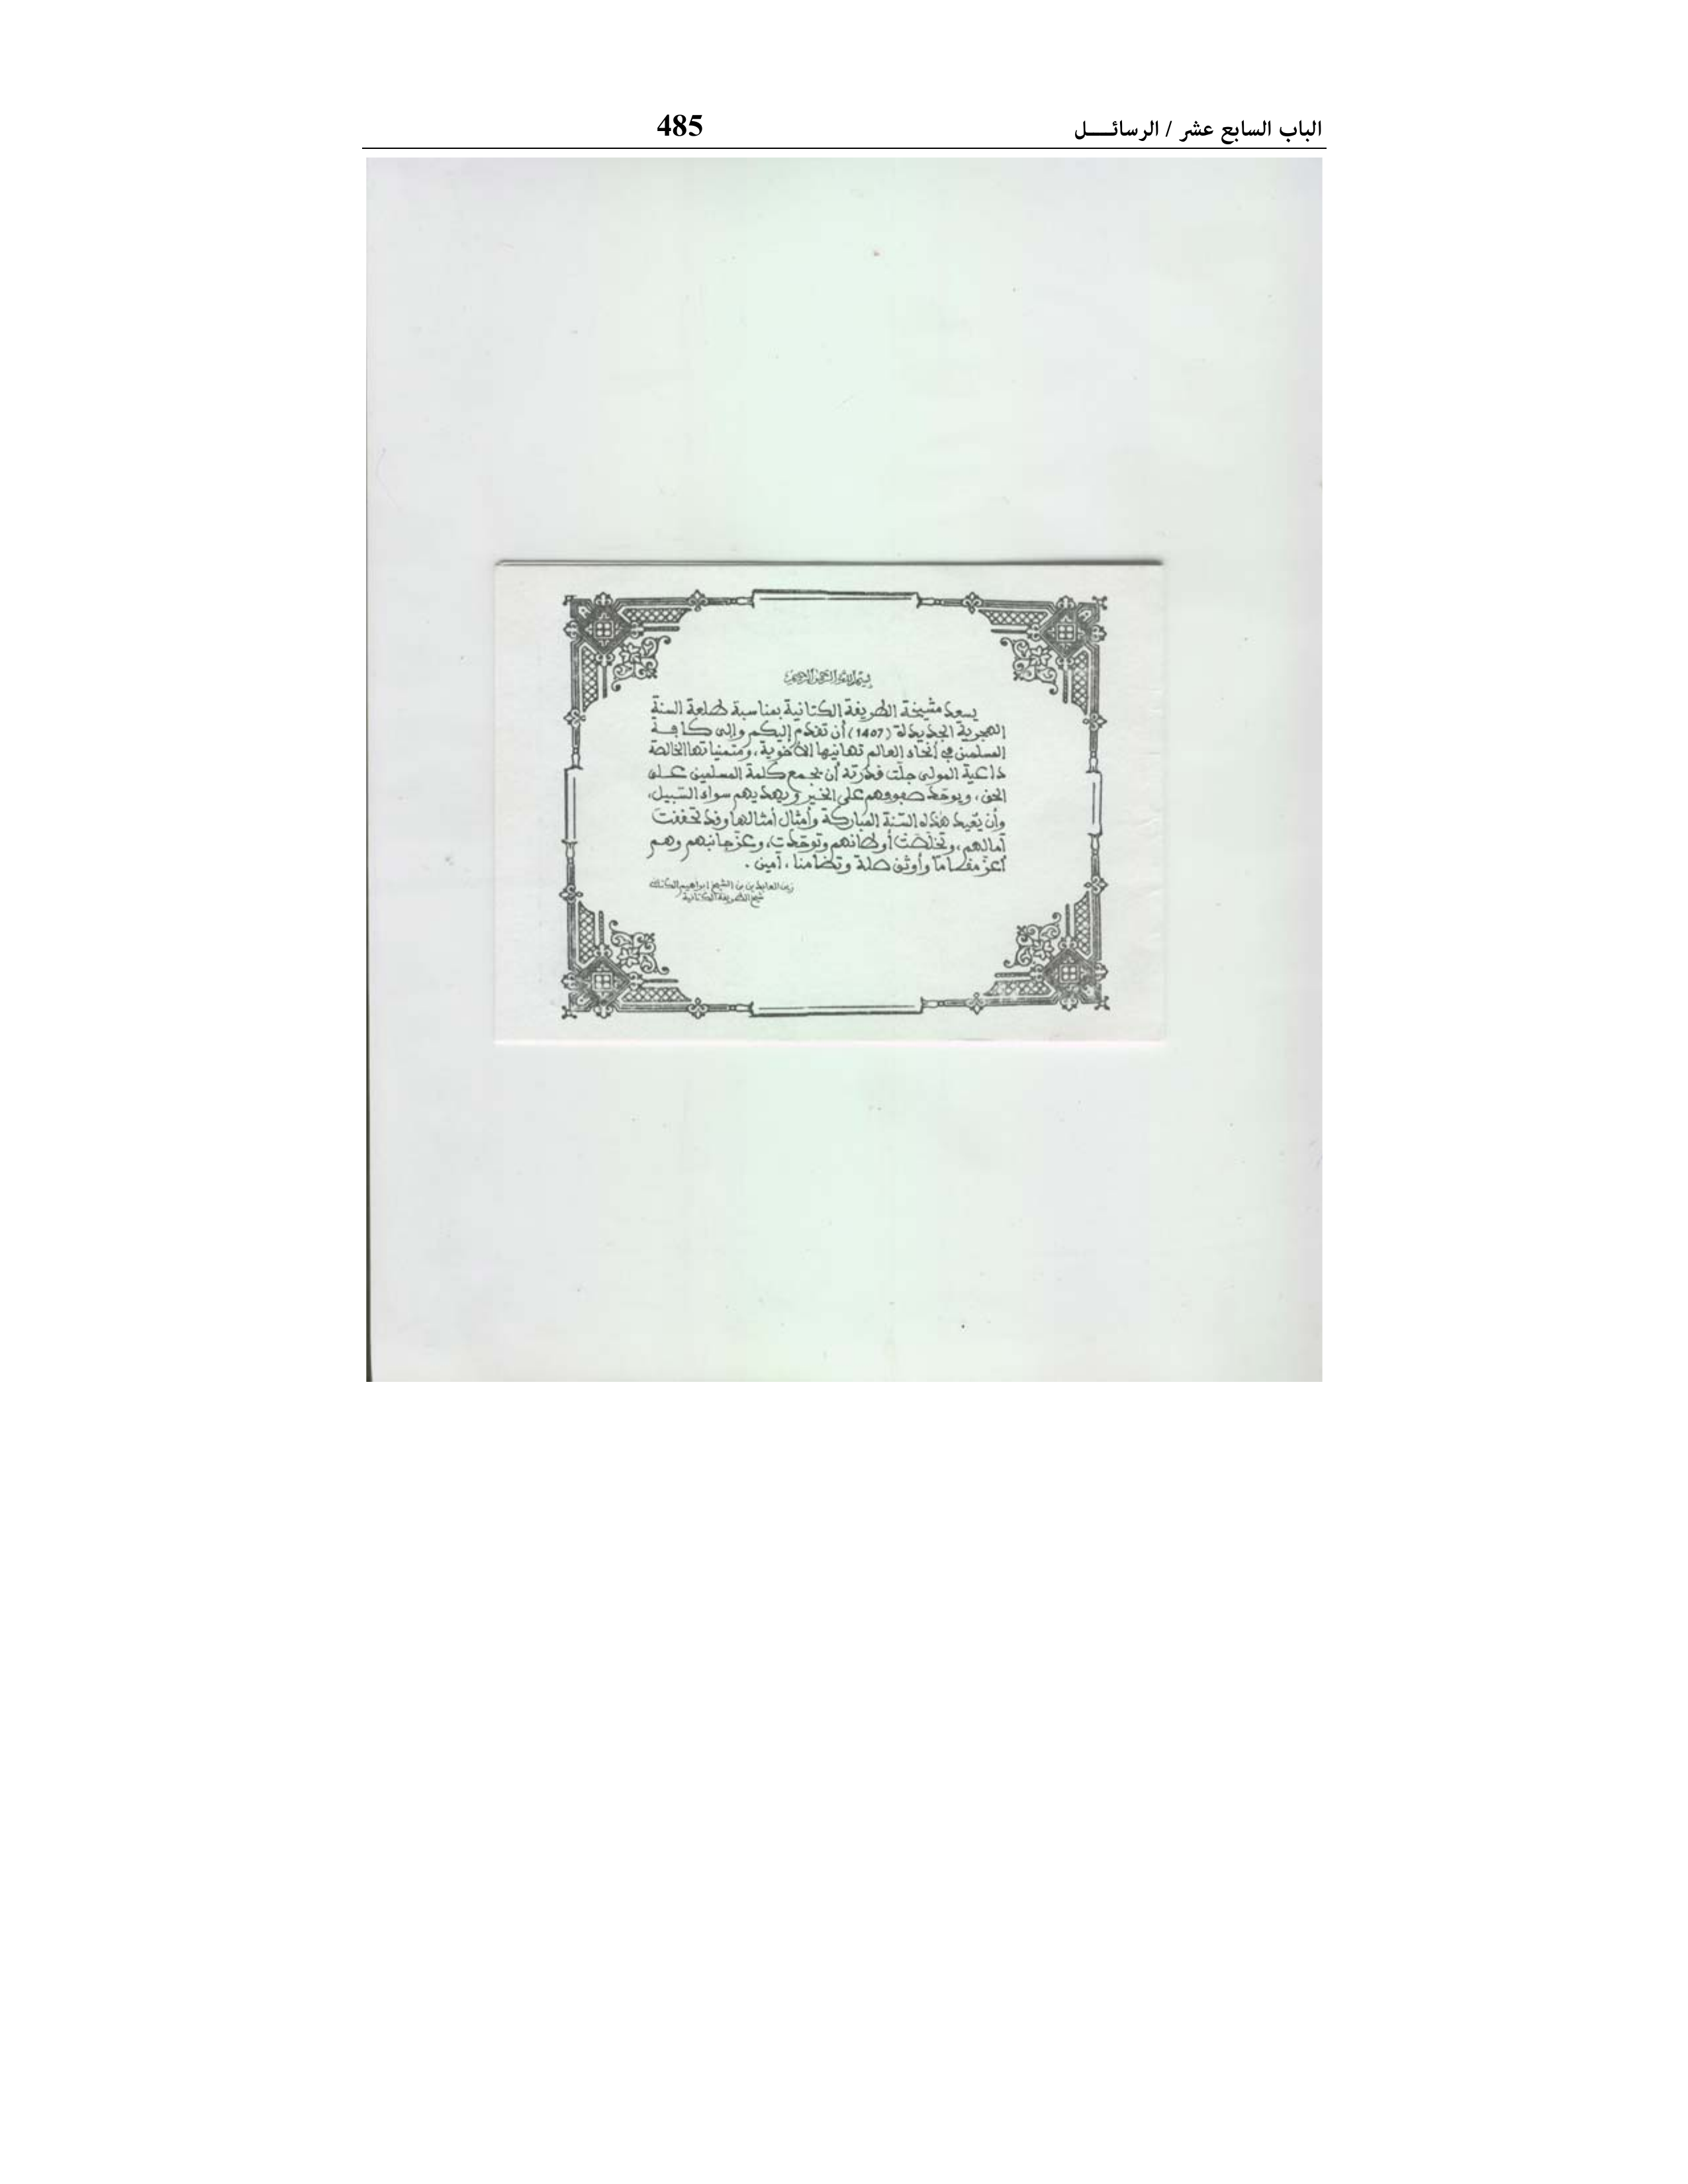 الباب السابع عشر / الرسائــــل 485
بسم الله الرحمن الرحيم
يسعد مشيخة الطريقة الكتانية بمناسبة طلعة السنة
الهجرية الجديدة (1407) أن تقدم إليكم وإلى كافـــة
المسلمين في أنحاء العالم تهانيها الأخوية، ومتمنياتها الخالصة
داعية المولى جلت قدرته أن يجمع كلمة المسلمين علــى
الحق، ويوحد صفوفهم على الخير ويهديهم سواء السبيل،
وأن يعيد هذه السنة المباركة وأمثال أمثالها وقد تحققت
آمالهم، وتخلصت أوطانهم وتوحدت، وعز جانبهم وهــم
أعز مقاما وأوثق صلة وتضامنا، آمين.
زين العابدين بن الشيخ ابراهيم الكتاني
شيخ الطريقة الكتانية